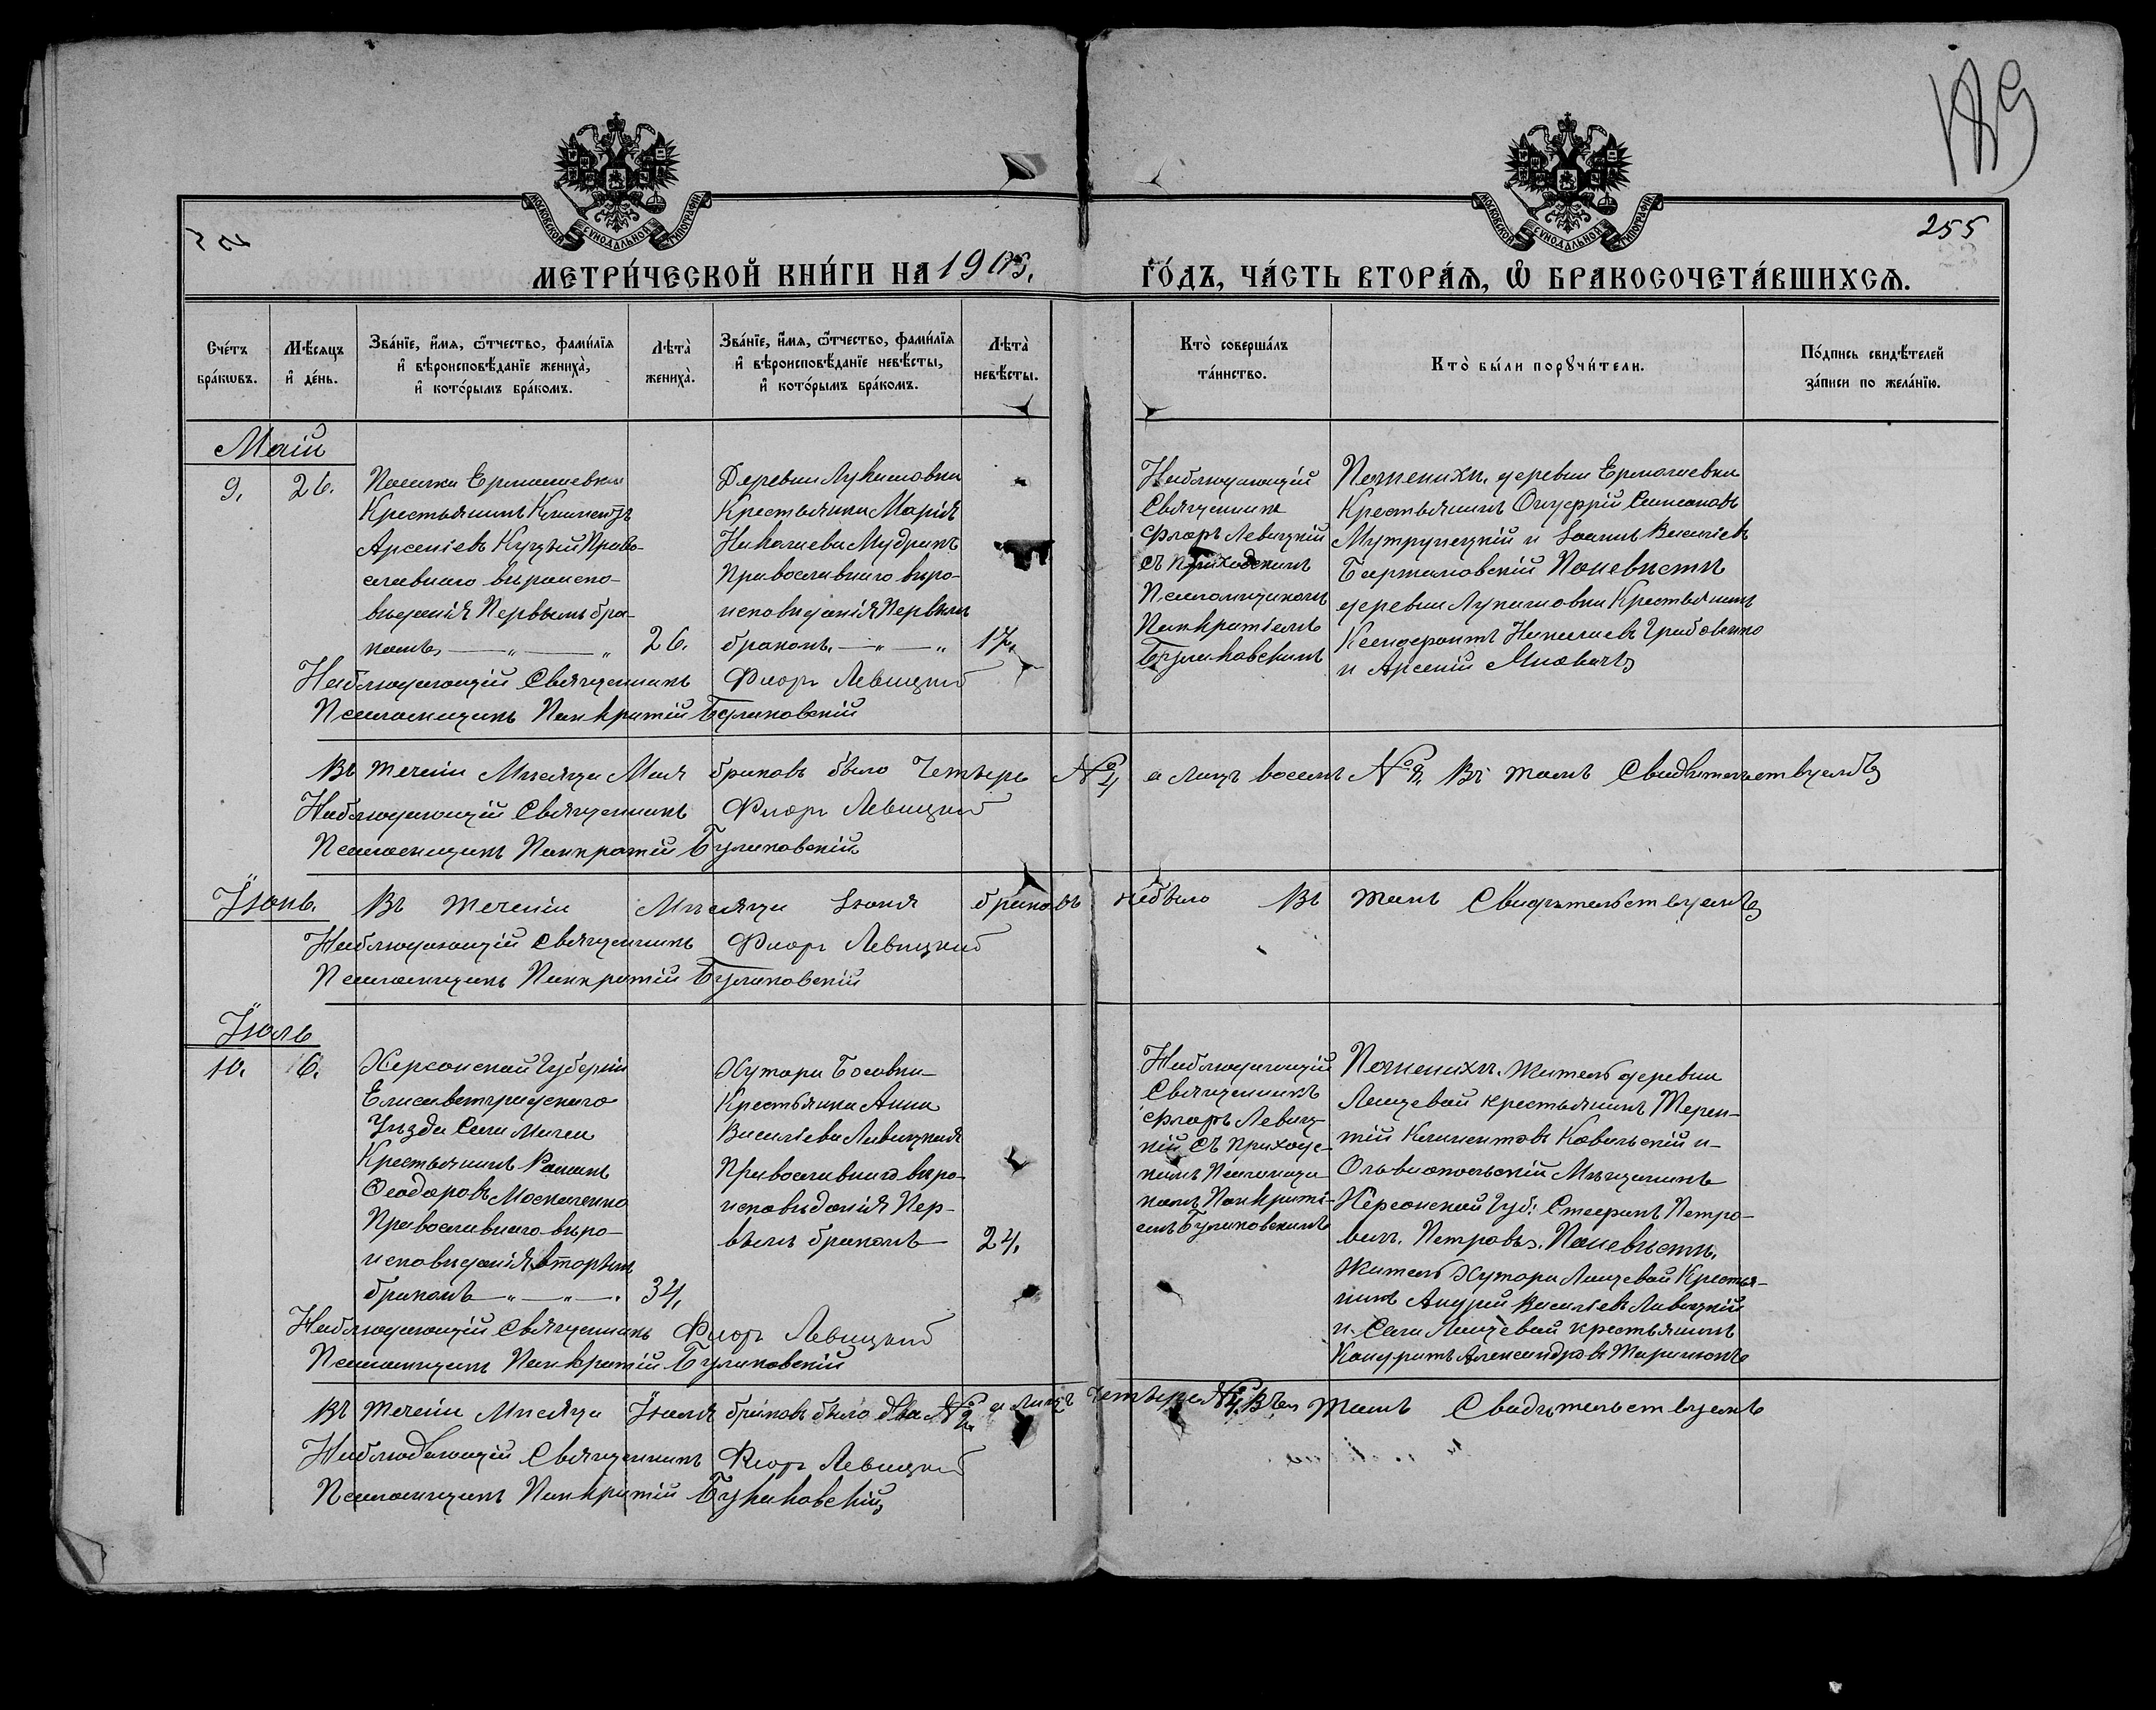 189
255
МЕТРИ́ЧЕСКОЙ КНИ́ГИ НА 1905. ГО́ДЪ, ЧА́СТЬ ВТОРА́Я, Ѡ БРАКОСОЧЕТА́ВШИХСЯ.
Сче́тъ бра́кѡвъ.
Мѣ́сяцъ и де́нь.
Зва́нїе, и́мя, ѻ҆́тчество, фами́лїя и вѣроисповѣ́данїе жениха̀, и кото́рымъ бра́комъ.
Лѣта̀ жениха̀.
Зва́нїе, и́мя, ѻ҆́тчество, фами́лїя и вѣроисповѣ́данїе невѣ́сты, и кото́рымъ бра́комъ.
Лѣта̀ невѣ́сты.
Кто̀ соверша́лъ та́инство.
Кто̀ бы́ли порꙋчи́тели.
По́дпись свидѣ́телей за́писи по жела́нїю.
Маій
9.
26.
Крестьянинъ Климентъ
Арсеніевъ Куцый Право-
славнаго вѣроиспо-
вѣданія Первымъ бра-
комъ,
26.
Крестьянка Марія
Николаева Мудракъ
Православнаго вѣро-
исповѣданія Первымъ
бракомъ.
17.
Наблюдающій
Священникъ
Флоръ Левицкій
съ приходскимъ
Псаломщикомъ
Панкратіемъ
Булаковскимъ
По женихѣ. деревни Ермолаевки
Крестьянинъ Онуфрій Симоновъ
и Іоаннъ Васильевъ
По невѣстѣ
Крестьянинъ
Николаевъ Грабовенко
и Арсеній
Наблюдающій Священникъ Флоръ Левицкій
Псаломщикъ Панкратій Булаковскій
Въ теченіи Мѣсяца Мая браковъ было Четыре № 4 а лицъ восемь № 8. Въ томъ Свидѣтельствуемъ
Наблюдающій Священникъ Флоръ Левицкій
Псаломщикъ Панкратій Булаковскій
Іюнь. Въ теченіи Мѣсяца Іюня браковъ небыло Въ томъ Свидѣтельствуемъ
Наблюдающій Священникъ Флоръ Левицкій
Псаломщикъ Панкратій Булаковскій
Іюль
10.
6.
Херсонской Губерніи
Елисаветградскаго
Уѣзда Села
Крестьянинъ Романъ
Ѳеодоровъ Москаленко
Православнаго вѣро-
исповѣданія вторымъ
бракомъ
34.
Хутора Босовки
Крестьянка Анна
Василіева Ливицкая
Православнаго вѣро-
исповѣданія Пер-
вымъ бракомъ
24.
Наблюдающій
Священникъ
Флоръ Левиц-
кій Съ приход-
скимъ Псаломщи-
комъ Панкраті-
емъ Булаковскимъ
По женихѣ. Житель деревни
Лащевой крестьянинъ Терен-
тій Климентовъ Ковальскій и
Ольвіопольскій Мѣщанинъ
Херсонской Губ: Стефанъ Петро-
вичъ. Петровъ. По невѣстѣ.
Житель Хутора Лащевой Крестья-
нинъ Андрей Василіевъ Ливицкій
и Села Лащевой крестьянинъ
Кондратъ Александровъ
Наблюдающій Священникъ Флоръ Левицкій
Псаломщикъ Панкратій Булаковскій
Въ теченіи Мѣсяца Іюля браковъ было два № 2 а лицъ четыре № 4. Въ томъ Свидѣтельствуемъ
Наблюдающій Священникъ Флоръ Левицкій
Псаломщикъ Панкратій Булаковскій